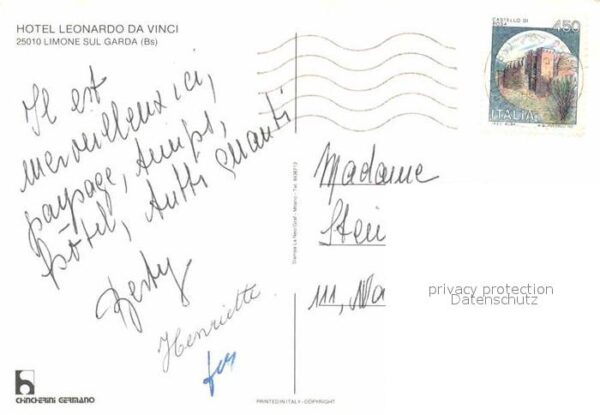 HOTEL LEONARDO DA VINCI
25010 LIMONE SUL GARDA (Bs)
Il est
merveilleux ici,
paysage, temps,
hôtel, tutti quanti
Henriette
CHINCHERINI GERMANO
Stampa La Neo Graf - Milano - Tel.
PRINTED IN ITALY - COPYRIGHT
CASTELLO DI
450
ITALIA
Madame
111,
privacy protection
Datenschutz